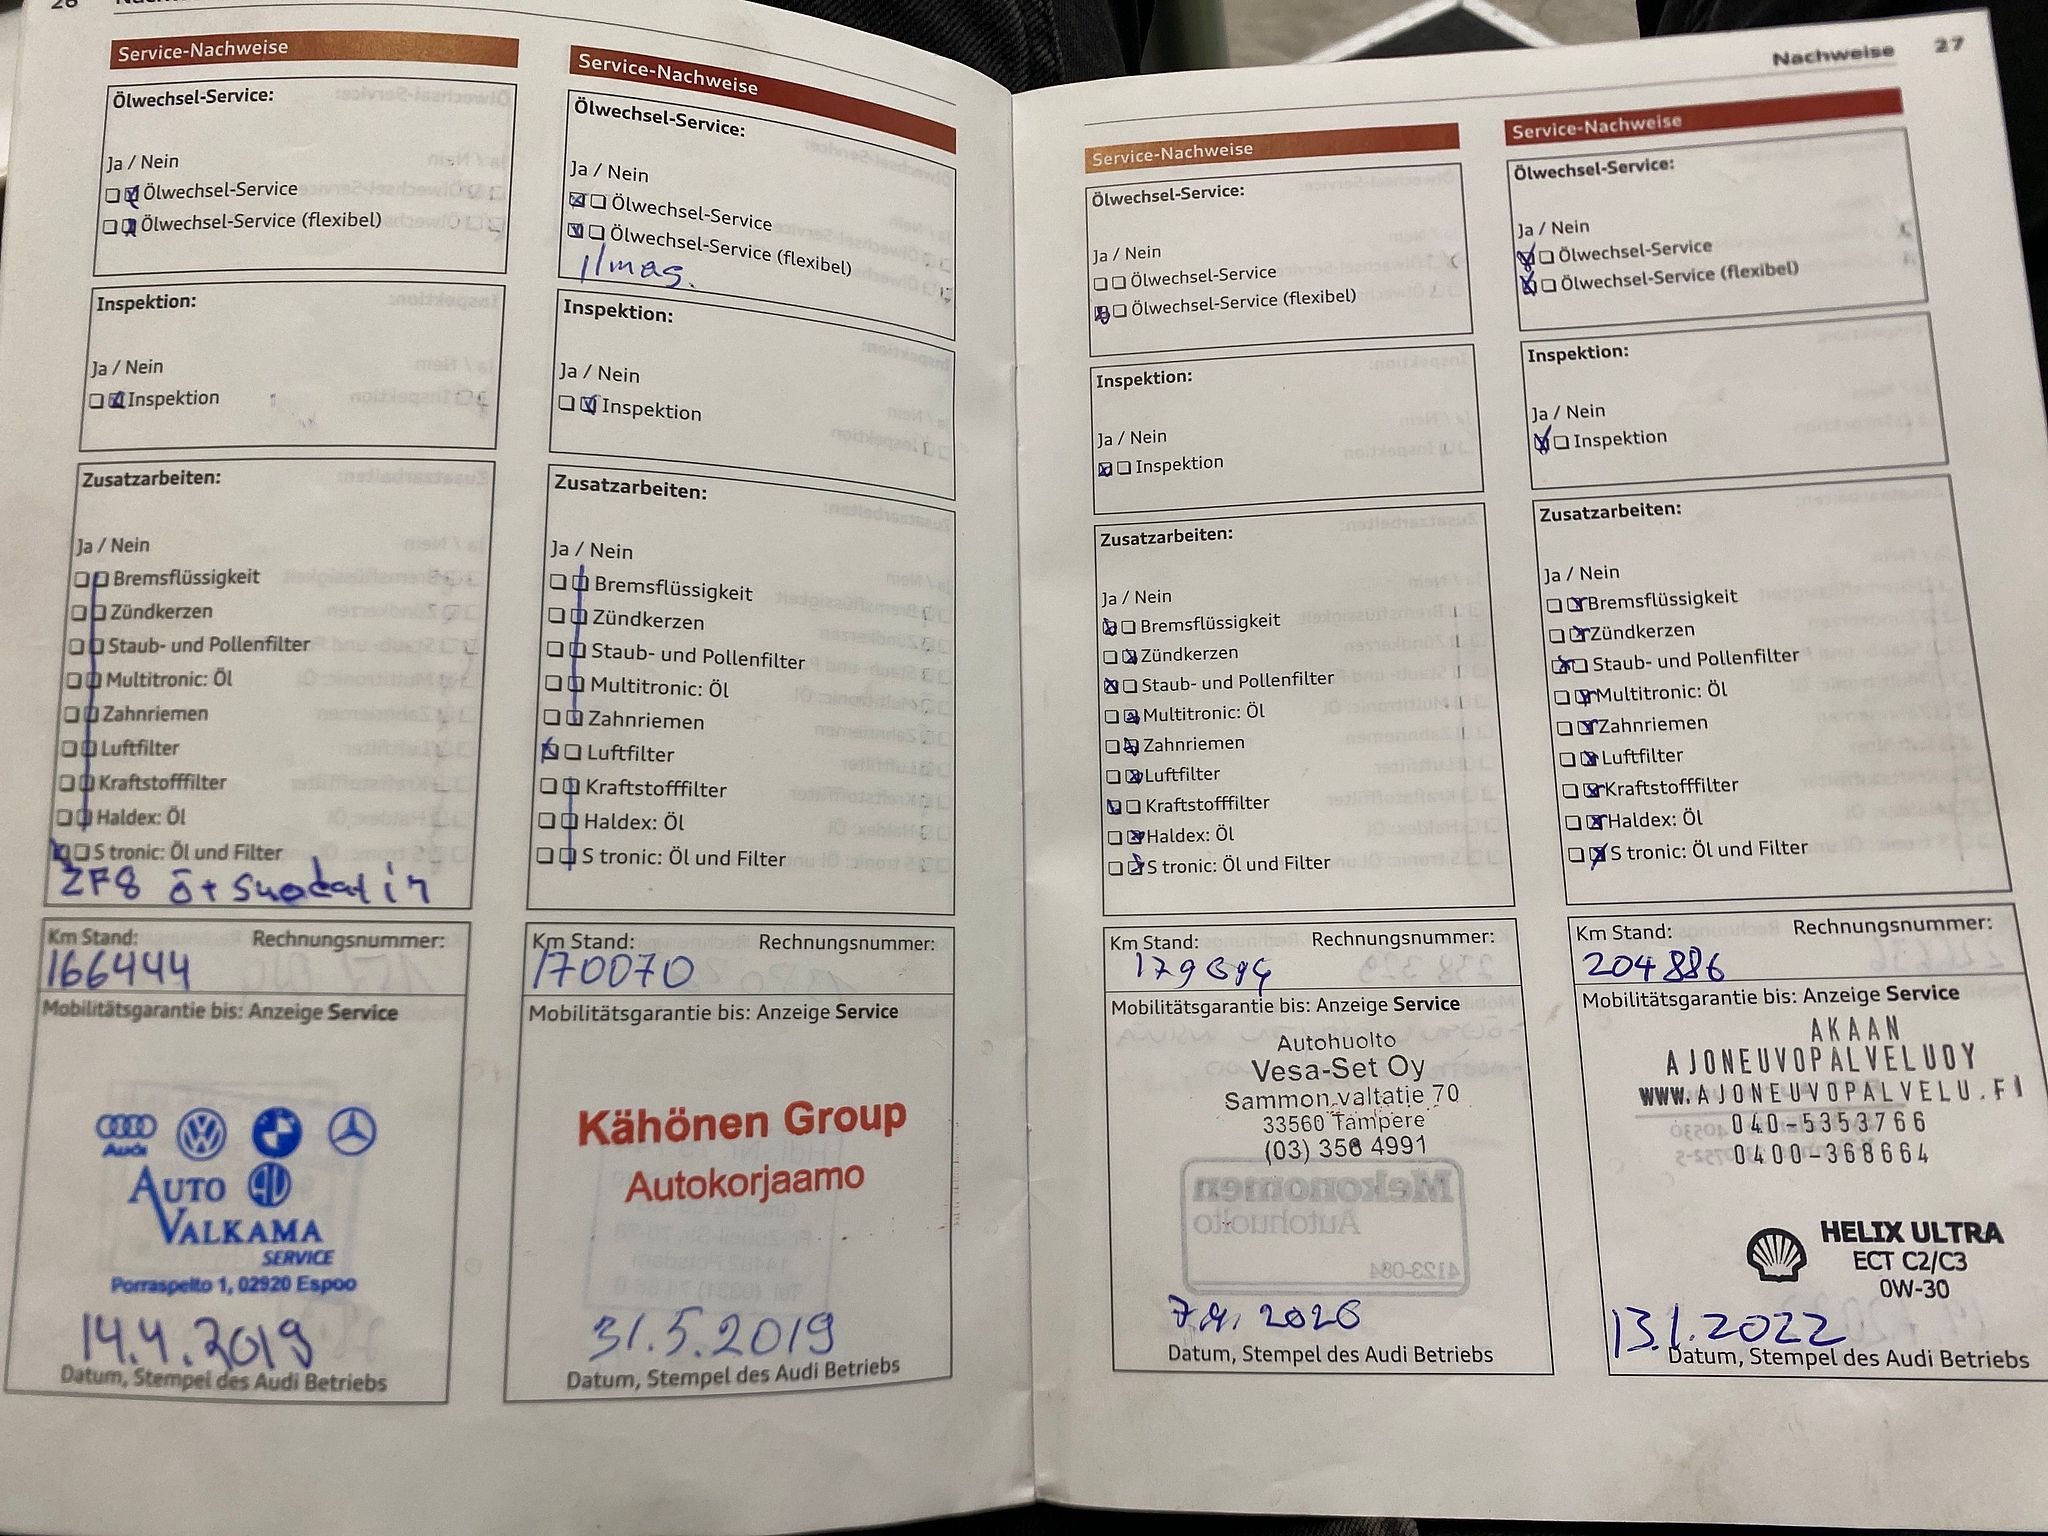 Service-Nachweise
Ölwechsel-Service:
Ja / Nein
Ölwechsel-Service
Ölwechsel-Service (flexibel)
Inspektion:
Ja / Nein
Inspektion
Zusatzarbeiten:
Ja / Nein
Bremsflüssigkeit
Zündkerzen
Staub- und Pollenfilter
Multitronic: Öl
Zahnriemen
Luftfilter
Kraftstofffilter
Haldex: Öl
S tronic: Öl und Filter
ZF8 Ö+Suodatin
Km Stand: Rechnungsnummer:
166444
Mobilitätsgarantie bis: Anzeige Service
Audi
AUTO
VALKAMA
SERVICE
Porraspelto 1, 02920 Espoo
14.4.2019
Datum, Stempel des Audi Betriebs
Service-Nachweise
Ölwechsel-Service:
Ja / Nein
Ölwechsel-Service
Ölwechsel-Service (flexibel)
Ilmas.
Inspektion:
Ja / Nein
Inspektion
Zusatzarbeiten:
Ja / Nein
Bremsflüssigkeit
Zündkerzen
Staub- und Pollenfilter
Multitronic: Öl
Zahnriemen
Luftfilter
Kraftstofffilter
Haldex: Öl
S tronic: Öl und Filter
Km Stand: Rechnungsnummer:
170070
Mobilitätsgarantie bis: Anzeige Service
Kähönen Group
Autokorjaamo
31.5.2019
Datum, Stempel des Audi Betriebs
Nachweise 27
Service-Nachweise
Ölwechsel-Service:
Ja / Nein
Ölwechsel-Service
Ölwechsel-Service (flexibel)
Inspektion:
Ja / Nein
Inspektion
Zusatzarbeiten:
Ja / Nein
Bremsflüssigkeit
Zündkerzen
Staub- und Pollenfilter
Multitronic: Öl
Zahnriemen
Luftfilter
Kraftstofffilter
Haldex: Öl
S tronic: Öl und Filter
Km Stand: Rechnungsnummer:
Mobilitätsgarantie bis: Anzeige Service
Autohuolto
Vesa-Set Oy
Sammon valtatie 70
33560 Tampere
(03) 356 4991
Datum, Stempel des Audi Betriebs
Service-Nachweise
Ölwechsel-Service:
Ja / Nein
Ölwechsel-Service
Ölwechsel-Service (flexibel)
Inspektion:
Ja / Nein
Inspektion
Zusatzarbeiten:
Ja / Nein
Bremsflüssigkeit
Zündkerzen
Staub- und Pollenfilter
Multitronic: Öl
Zahnriemen
Luftfilter
Kraftstofffilter
Haldex: Öl
S tronic: Öl und Filter
Km Stand: Rechnungsnummer:
204886
Mobilitätsgarantie bis: Anzeige Service
AKAAN
AJONEUVOPALVELUOY
WWW.AJONEUVOPALVELU.FI
040-5353766
0400-368664
HELIX ULTRA
ECT C2/C3
0W-30
13.1.2022
Datum, Stempel des Audi Betriebs